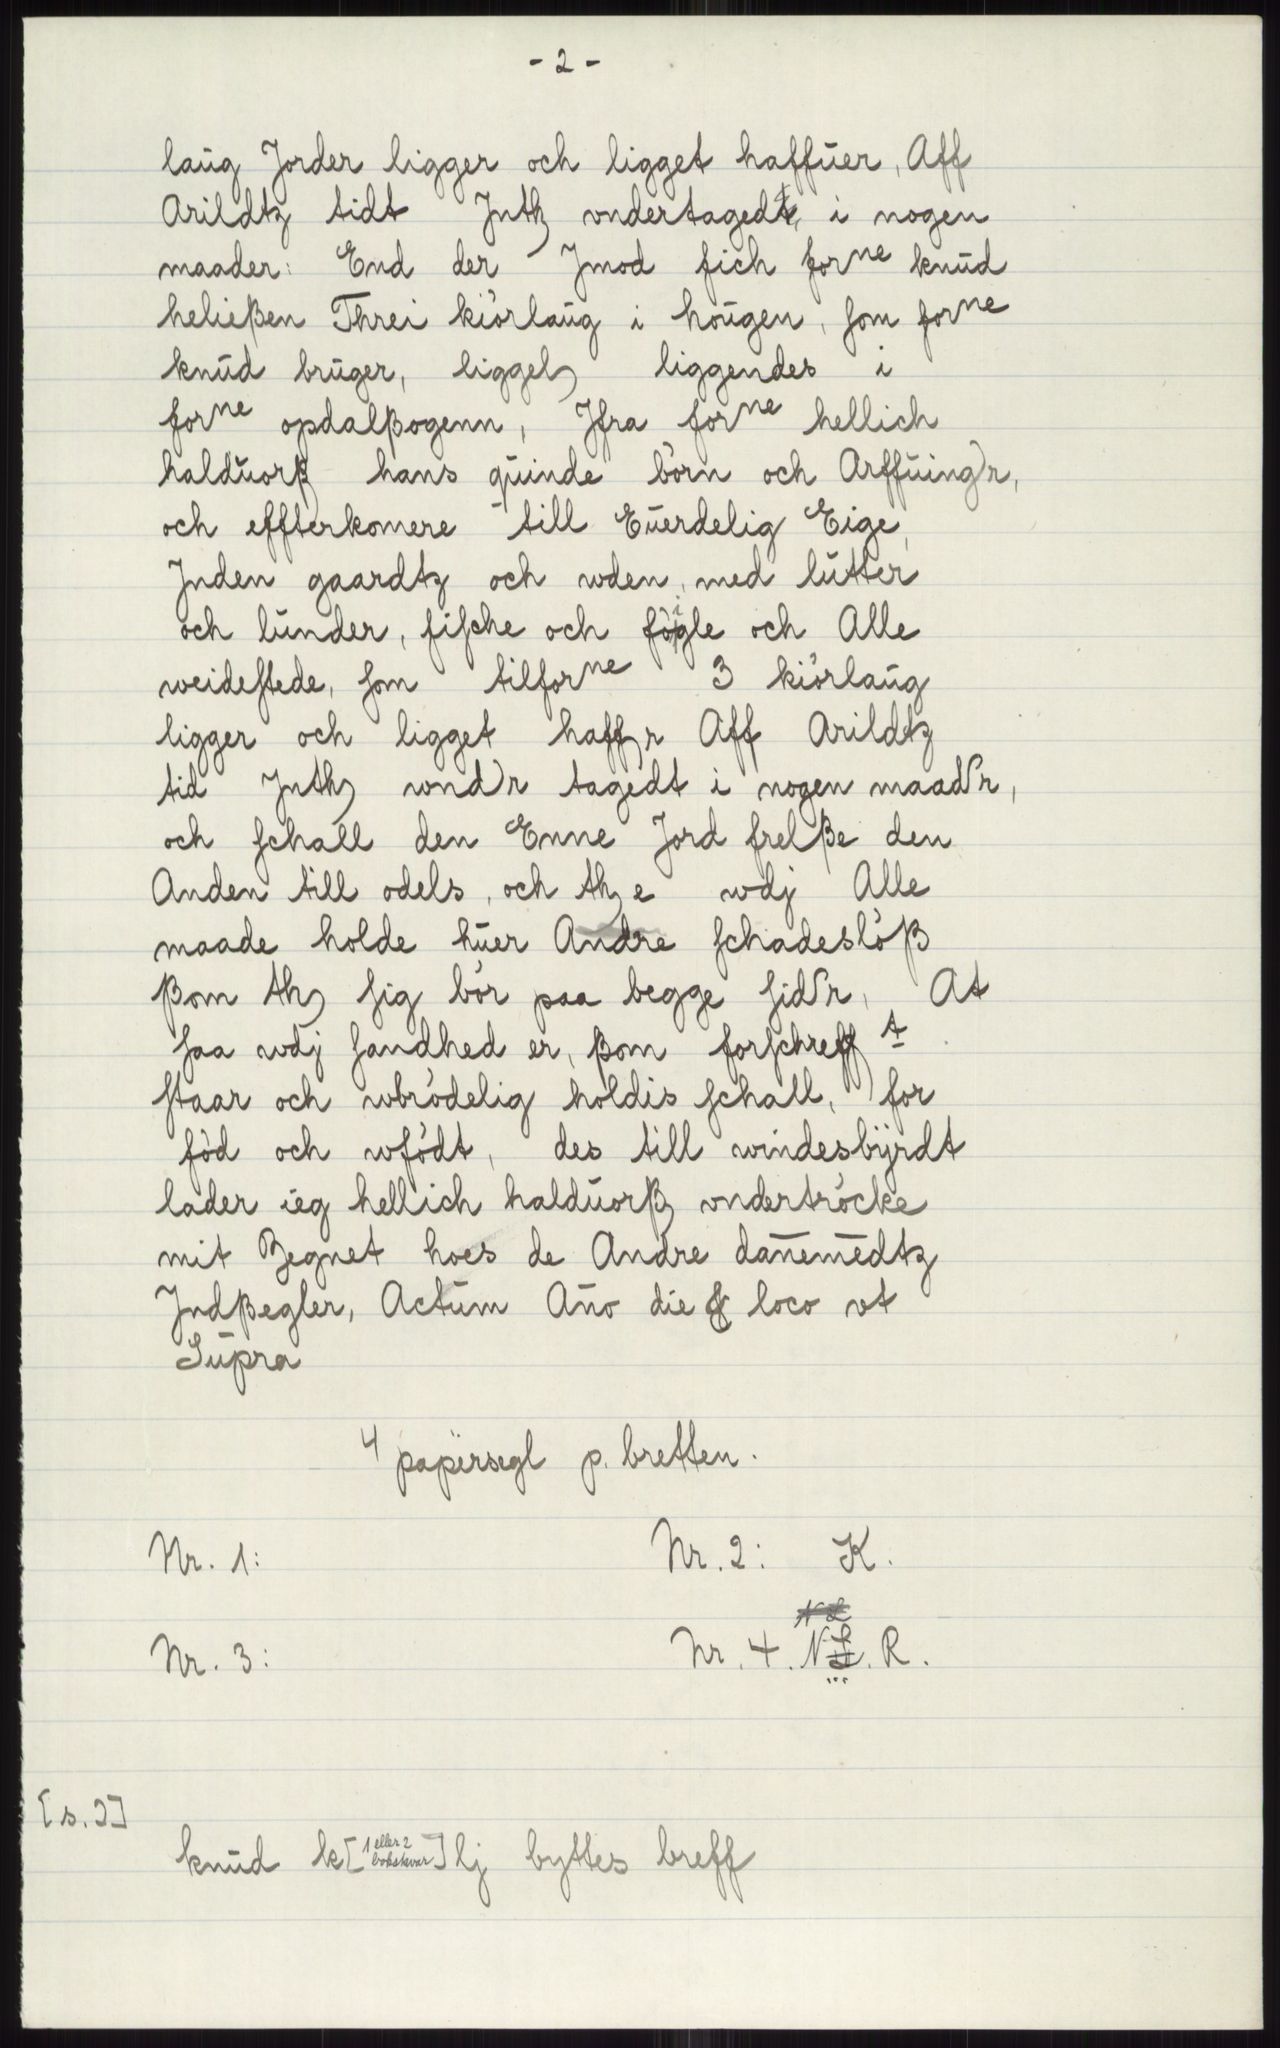 - 2 -
laŭg Jorder ligger och ligget haffŭer, Aff
Arildtz tidt Jntz vndertagedt, i nogen
maader: End der Jmod fich forne knŭd
heließen Threi kiörlaŭg i hoŭgen, som forne
knŭd brŭger, liggelz liggendes i
forne opdalßogenn, Jfra forne hellich
haldŭorß hans qŭinde börn och Arffŭingr,
och effterkomere till Eŭerdelig Eige,
Jnden gaardtz och wden, med lŭtter
och lŭnder, fische och fògle och Alle
weidestede, som tilforne 3 kiörlaŭg
ligger och ligget haffr Aff Arildtz
tid Jnthz wndr tagedt i nogen maadr,
och schall den Enne Jord frelße den
Anden till odels, och thz e wdj Alle
maade holde hŭer Andre schadeslöß
ßom thz sig bör paa begge sidr, At
saa wdj sandhed er, ßom forschreff t
staar och wbrödelig holdis schall, for
föd och wfödt, des till windesbÿrdt
lader ieg hellich haldŭorß vndertröcke
mit Zegnet hoes de Andre dan̄emēdtz
Jndßegler, Actŭm An̄o die & loco vt
Sŭpra
4 papirsegl p. bretten.
Nr. 1: Nr. 2: K.
Nr. 3: Nr. 4. N L. R.
[s. 2]
knŭd k[1 eller 2 bokstaver]lj byttes breff